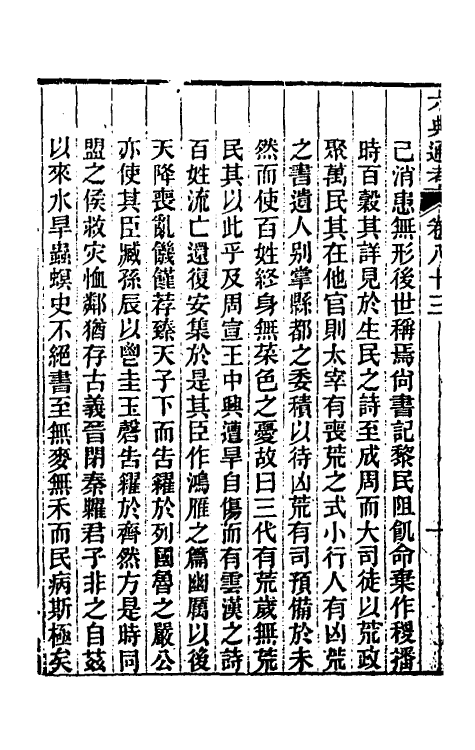 六典通考 卷八十三 十
已消患無形後世稱焉尙書記黎民阻飢命棄作稷播
時百穀其詳見於生民之詩至成周而大司徒以荒政
聚萬民其在他官則太宰有喪荒之式小行人有凶荒
之書遺人別掌縣都之委積以待凶荒有司預備於未
然而使百姓終身無菜色之憂故曰三代有荒歲無荒
民其以此乎及周宣王中興遭旱自傷而有雲漢之詩
百姓流亡還復安集於是其臣作鴻雁之篇幽厲以後
天降喪亂饑饉荐臻天子下而告糴於列國魯之嚴公
亦使其臣臧孫辰以鬯圭玉磬告糴於齊然方是時同
盟之侯救灾恤鄰猶存古義晉閉秦糴君子非之自茲
以來水旱蟲螟史不絕書至無麥無禾而民病斯極矣